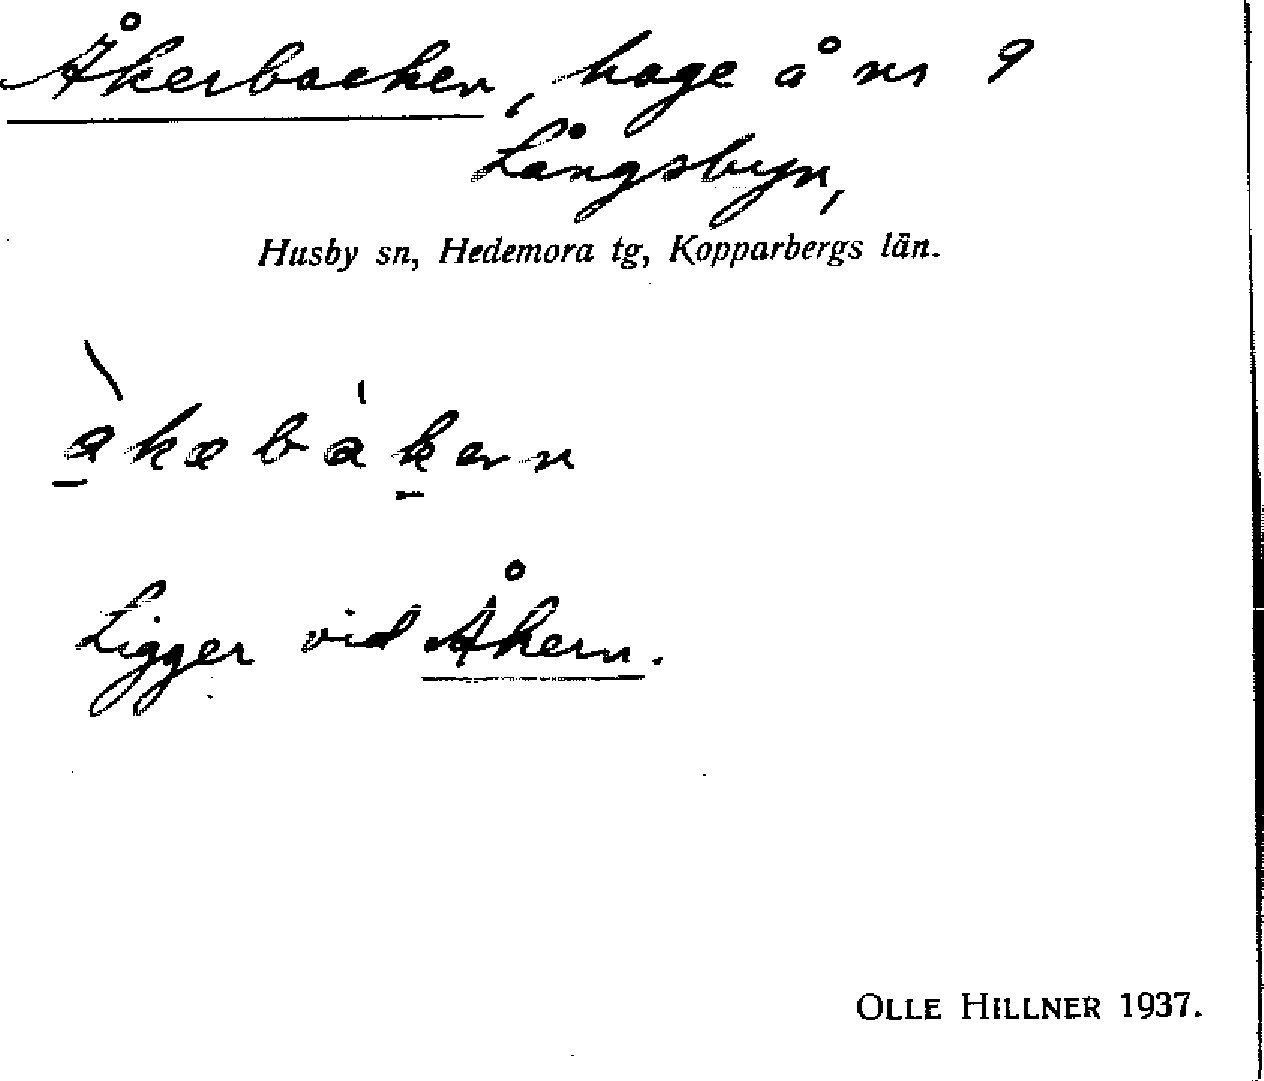 Åkerbacken, hage å nr 9
Långsbyn,
Husby sn, Hedemora tg, Kopparbergs län.
Ligger vid Åkern.
OLLE HILLNER 1937.